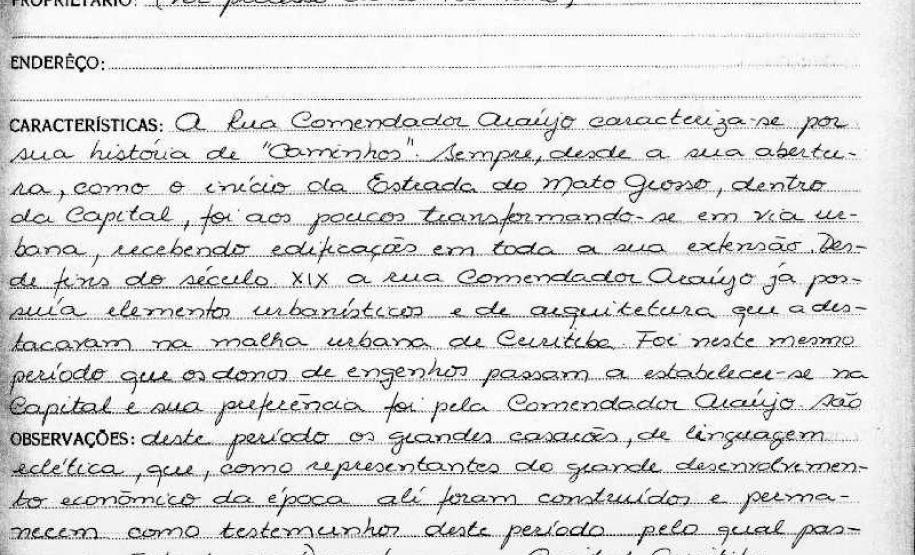 PROPRIETÁRIO: (ver processo
ENDERÊÇO:
CARACTERÍSTICAS: A Rua Comendador Araújo caracteriza-se por
sua história de "Caminhos". Sempre, desde a sua abertu-
ra, como o início da Estrada do Mato Grosso, dentro
da Capital, foi aos poucos transformando-se em via ur-
bana, recebendo edificações em toda a sua extensão. Des-
de fins do século XIX a rua Comendador Araújo já pos-
suía elementos urbanísticos e de arquitetura que a des-
tacavam na malha urbana de Curitiba. Foi neste mesmo
período que os donos de engenhos passam a estabelecer-se na
Capital e sua preferência foi pela Comendador Araújo. São
OBSERVAÇÕES: deste período os grandes casarões, de linguagem
eclética, que, como representantes do grande desenvolvimen-
to econômico da época ali foram construídos e perma-
necem como testemunhos deste período pelo qual pas-